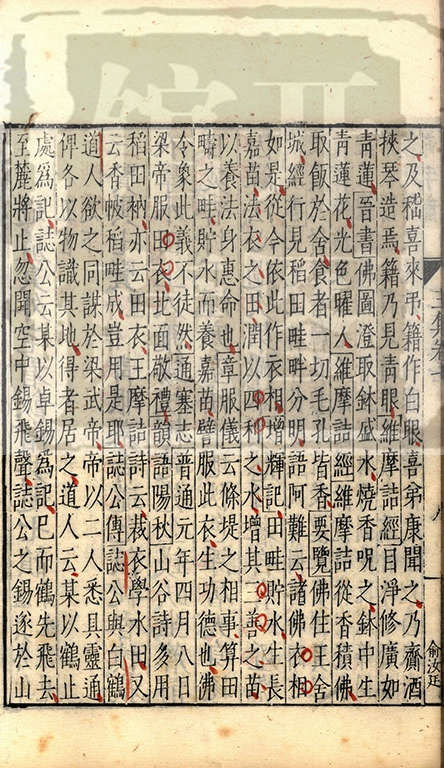 之及嵇喜來弔籍作白眼喜弟康聞之乃齎酒
挾琴造焉籍乃見青眼維摩詰經目淨修廣如
青蓮晉書佛圖澄取鉢盛水燒香呪之鉢中生
青蓮花光色曜人維摩詰經維摩詰從香積佛
取飯於舍食者一切毛孔皆香要覽佛住王舍
城經行見稻田畦畔分明語阿難云諸佛衣相
如是從今依此作衣相增輝記田畦貯水生長
嘉苗法衣之田潤以四利之水增其三善之苗
以養法身惠命也章服儀云條堤之相事算田
疇之畦貯水而養嘉苗譬服此衣生功德也佛
令象此義不徒然通塞志普通元年四月八日
梁帝服田衣北面敬禮韻語陽秋山谷詩多用
稻田衲亦云田衣王摩詰詩云裁衣學水田又
云香帔稻畦成豈用是耶誌公傳誌公與白鶴
道人欲之同謀於梁武帝帝以二人悉具靈通
俾各以物識其地得者居之道人云某以鶴止
處爲記誌公云某以卓錫爲記已而鶴先飛去
至麓將止忽聞空中錫飛聲誌公之錫遂於山